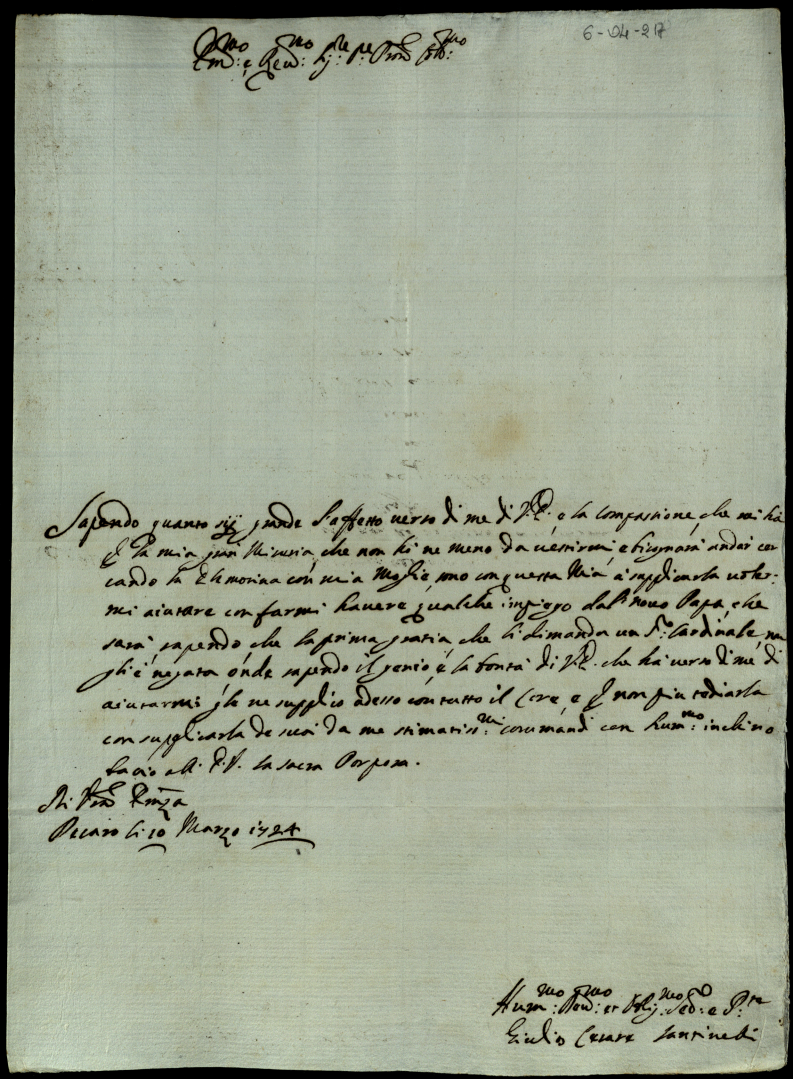 6-04-217
Em:mo e Rev:mo Sig:re P:re Pron Col:mo
Sapendo quanto sij grande l'affetto verso di me di V.E. e la compassione, che mi hà
P la mia gran Miseria, che non hò ne meno da vestirmi, e bisognarà andar cer
cando la Elemosina con mia Moglie, sono con questa Mia à supplicarla voler:
mi aiutare con farmi havere qualche impiego dal novo Papa, che
sarà, sapendo che la prima gratia, che li dimanda un S.r Cardinale, non
gli è negata, onde sapendo il genio, e la bontà di V.E. che hà verso di me di
aiutarmi, gle ne supplico adesso con tutto il Core, e P non più tediarla
con supplicarla de suoi da me stimatiss:mi comandi con hum:mo inchino
bacio all' E.V. la sacra Porpora.
Di V:ra Em:za
Pesaro li 10 Marzo 1724
Hum:mo Dev:mo et Oblig:mo Ser:o e P:re
Giulio Cesare Santinelli